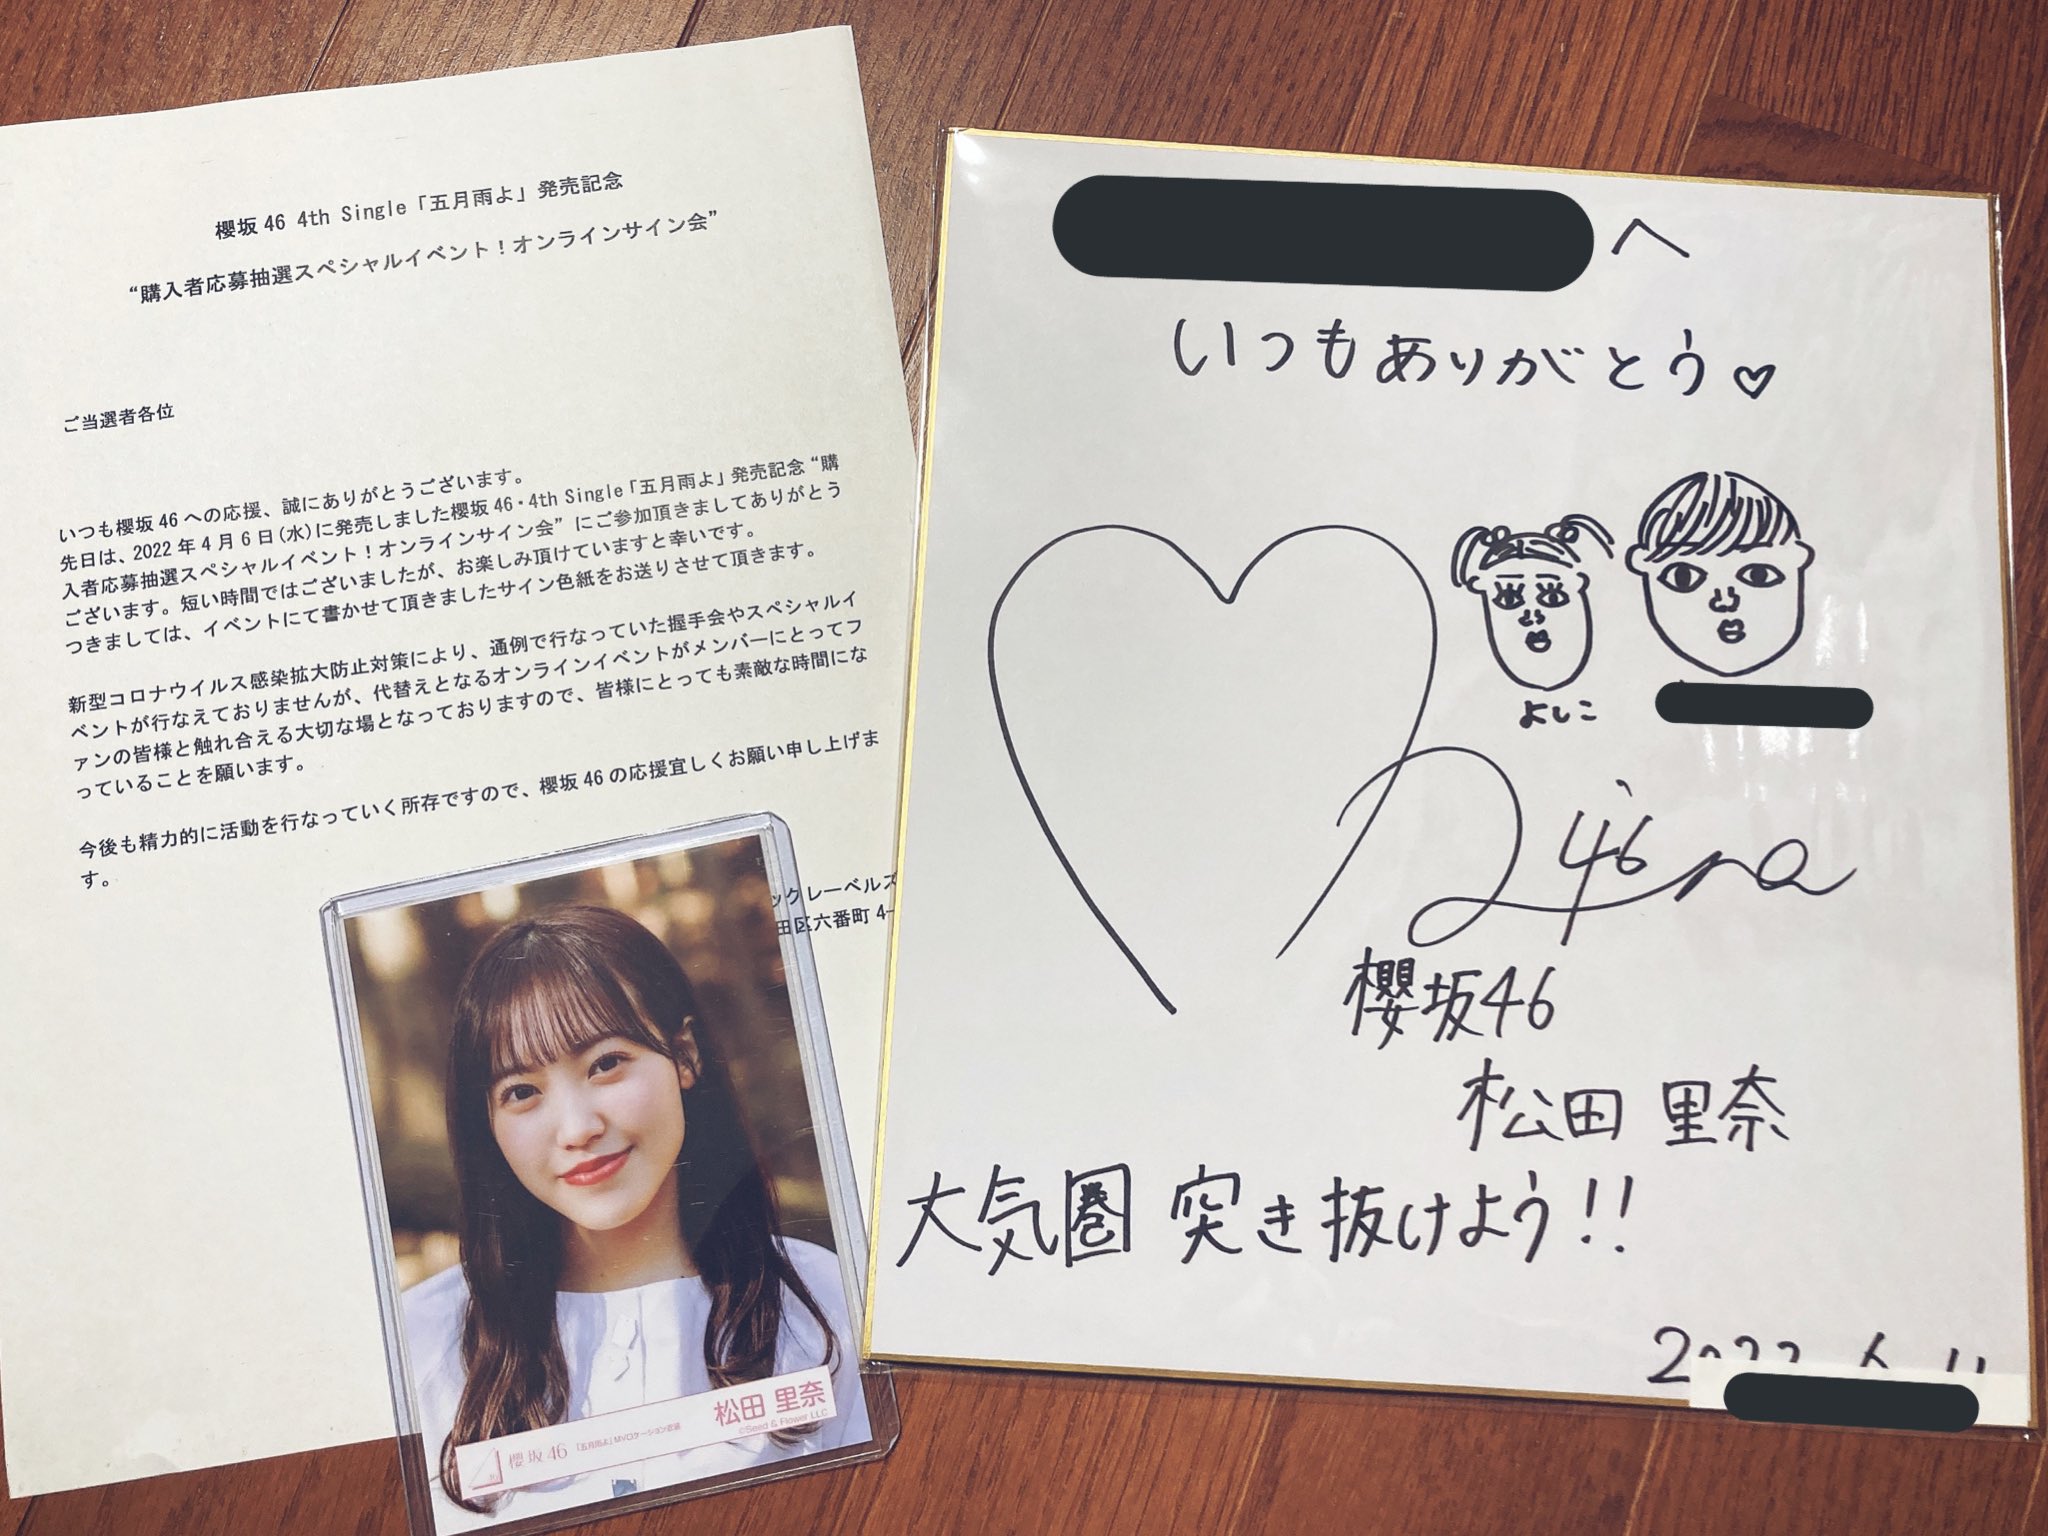 櫻坂46 4th Single「五月雨よ」発売記念
“購入者応募抽選スペシャルイベント！オンラインサイン会”
ご当選者各位
いつも櫻坂46への応援、誠にありがとうございます。
先日は、2022年4月6日(水)に発売しました櫻坂46・4th Single「五月雨よ」発売記念“購
入者応募抽選スペシャルイベント！オンラインサイン会”にご参加頂きましてありがとう
ございます。短い時間ではございましたが、お楽しみ頂けていますと幸いです。
つきましては、イベントにて書かせて頂きましたサイン色紙をお送りさせて頂きます。
新型コロナウイルス感染拡大防止対策により、通例で行なっていた握手会やスペシャルイ
ベントが行なえておりませんが、代替えとなるオンラインイベントがメンバーにとってフ
ァンの皆様と触れ合える大切な場となっておりますので、皆様にとっても素敵な時間にな
っていることを願います。
今後も精力的に活動を行なっていく所存ですので、櫻坂46の応援宜しくお願い申し上げま
す。
ックレーベルズ
田区六番町4-
松田 里奈
©Seed & Flower LLC
櫻坂46 「五月雨よ」MVロケーション衣装
へ
いつもありがとう♡
よしこ
46
櫻坂46
松田 里奈
大気圏 突き抜けよう!!
2022